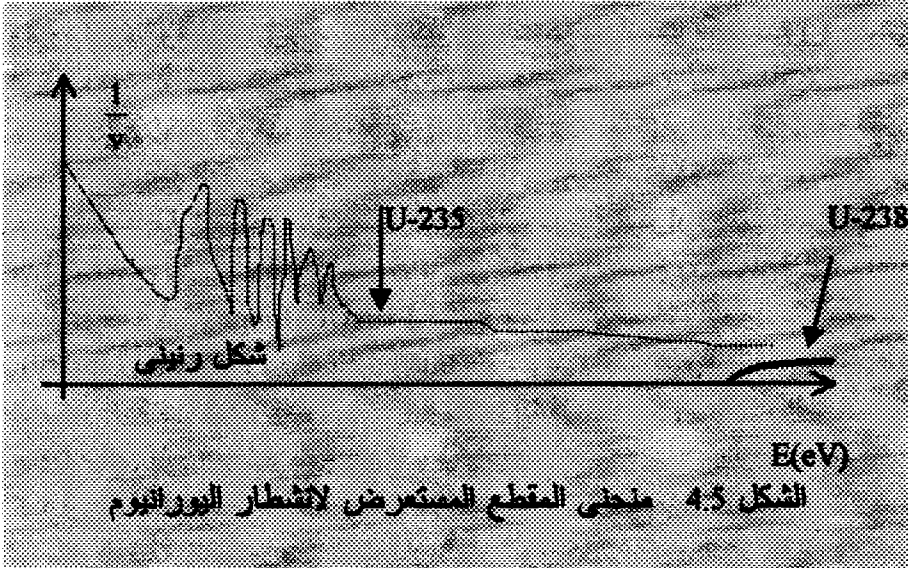 1
v
U-235
U-238
شكل رنيني
E(eV)
الشكل 4.5 منحنى المقطع المستعرض لانشطار اليورانيوم